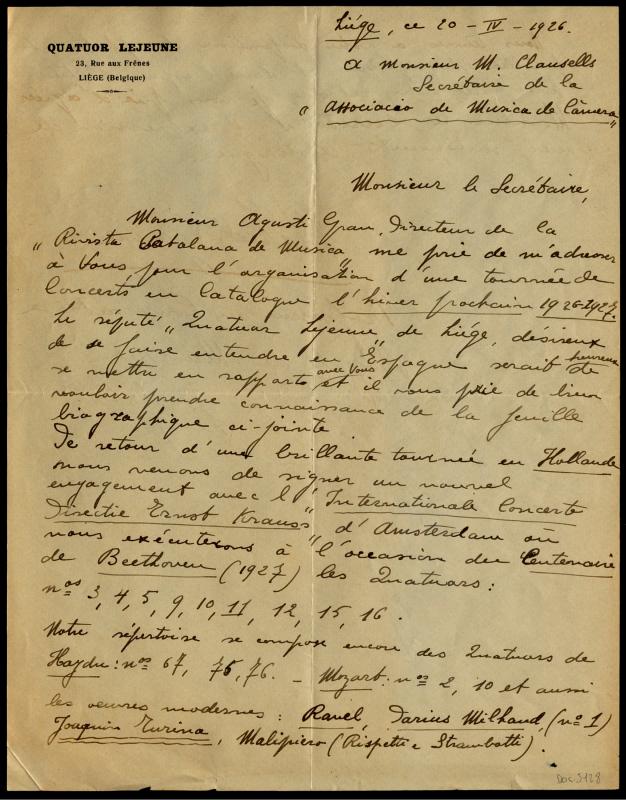 QUATUOR LEJEUNE
23, Rue aux Frênes
LIÉGE (Belgique)
Liége, ce 20 - IV - 1926.
A Monsieur M. Clausells
Secrétaire de la
"Associacio de Musica de Càmera"
Monsieur le Secrétaire,
Monsieur Agusti Grau, Directeur de la
"Rivista Catalana de Musica" me prie de m'adresser
à Vous pour l'organisation d'une tournée de
Concerts en Catalogne l'hiver prochain 1926-1927.
Le réputé "Quatuor Lejeune" de Liége, désireux
de se faire entendre en Espagne serait heureux de
se mettre en rapports avec Vous et il vous prie de bien
vouloir prendre connaissance de la feuille
biographique ci-jointe
De retour d'une brillante tournée en Hollande
nous venons de signer un nouvel
engagement avec l'"Internationale Concerts
Directie Ernst Krauss" d'Amsterdam où
nous exécuterons à l'occasion du Centenaire
de Beethoven (1927) les Quatuors:
nos 3, 4, 5, 9, 10, 11, 12, 15, 16.
Notre répertoire se compose encore des Quatuors de
Haydn: nos 67, 75, 76. - Mozart: nos 2, 10 et aussi
les oeuvres modernes: Ravel, Darius Milhaud, (no 1)
Joaquin Turina, Malipiero (Rispetti e Strambotti).
Doc 3128